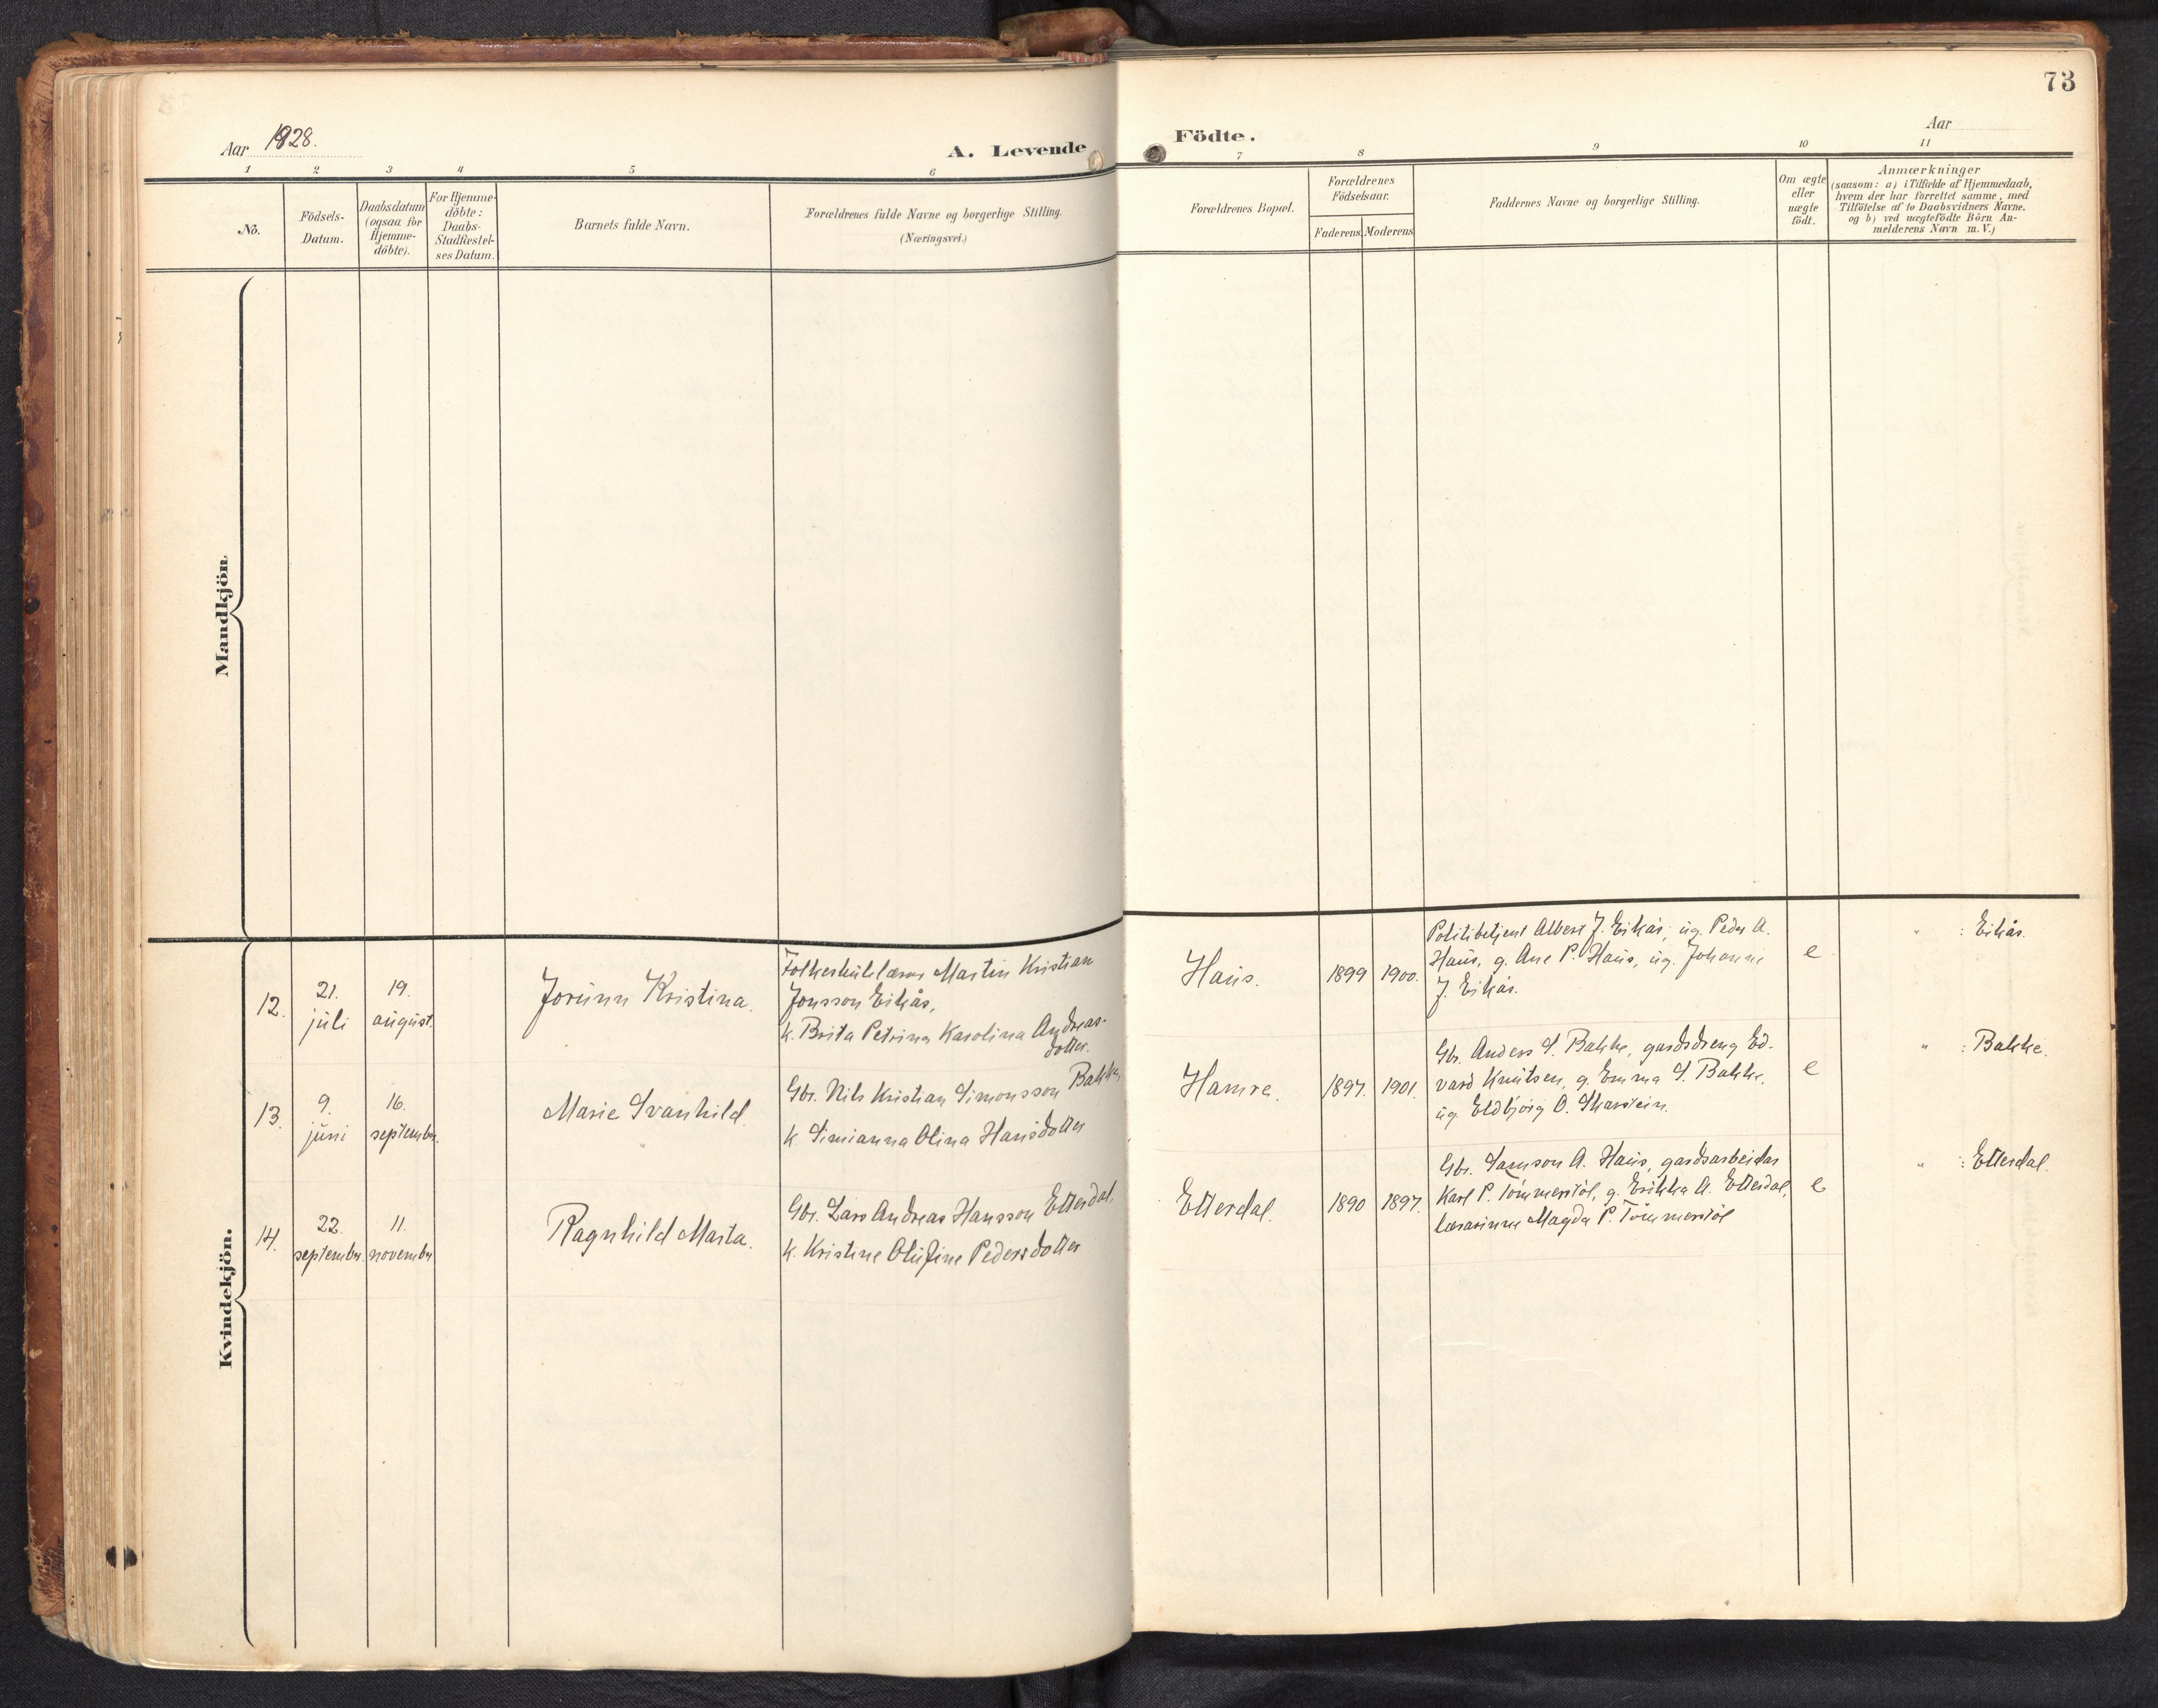 73
Aar 1928.
A. Levende Födte.
Aar
1 2 3 4 5 6 7 8 9 10 11
Nò.
Födsels-
Datum.
Daabsdatum
(ogsaa for
Hjemme-
döbte).
For Hjemme-
döbte:
Daabs-
Stadfæstel-
ses Datum.
Barnets fulde Navn.
Forældrenes fulde Navne og borgerlige Stilling.
(Næringsvei.)
Forældrenes Bopæl.
Forældrenes
Födselsaar.
Faderens Moderens
Faddernes Navne og borgerlige Stilling.
Om ægte
eller
uægte
födt.
Anmærkninger
(saasom: a) i Tilfælde af Hjemmedaab,
hvem der har forrettet samme, med
Tilföielse af to Daabsvidners Navne.
og b) ved uægtefödte Börn An-
melderens Navn m.V.)
Mandkjön.
Kvindekjön.
12.
21.
juli
19.
august.
Jorunn Kristina.
Folkeskulelærar Martin Kristian
Jonsson Eikås,
k. Brita Petrina Karolina Andreas-
dotter.
Haus.
1899 1900.
Politibetjent Albert J. Eikås, ug. Peder A.
Haus, g. Ane P. Haus, ug. Johanne
J. Eikås.
e
" : Eikås.
13.
9.
juni
16.
september.
Marie Svanhild.
Gbr. Nils Kristian Simonsson Bakke,
k. Simianna Olina Hansdotter
Hamre.
1897. 1901.
Gbr. Anders S. Bakke, gardsdreng Ed-
vard Knutsen, g. Emma S. Bakke,
ug. Eldbjørg O. Skarstein.
e
" : Bakke.
14.
22.
september.
11.
november
Ragnhild Marta.
Gbr. Lars Andreas Hansson Etterdal,
k. Kristine Olufine Pedersdotter
Etterdal.
1890 1897.
Gbr. Samson A. Haus, gardsarbeidar
Karl P. Tömmerstöl, g. Erikka A. Etterdal,
lærarinne Magda P. Tömmerstöl
e
" : Etterdal.